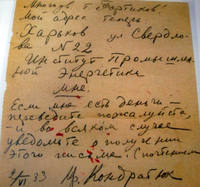 Многов. т. Фортиков!
Мой адрес теперь
Харьков ул Свердло-
ва № 22
Институт Промышлен-
ной Энергетики
мне.
Если мне есть деньги —
переведите пожалуйста,
и во всяком случае
уведомите о получении
этого письма.
2/VI 33 Юр. Кондратюк